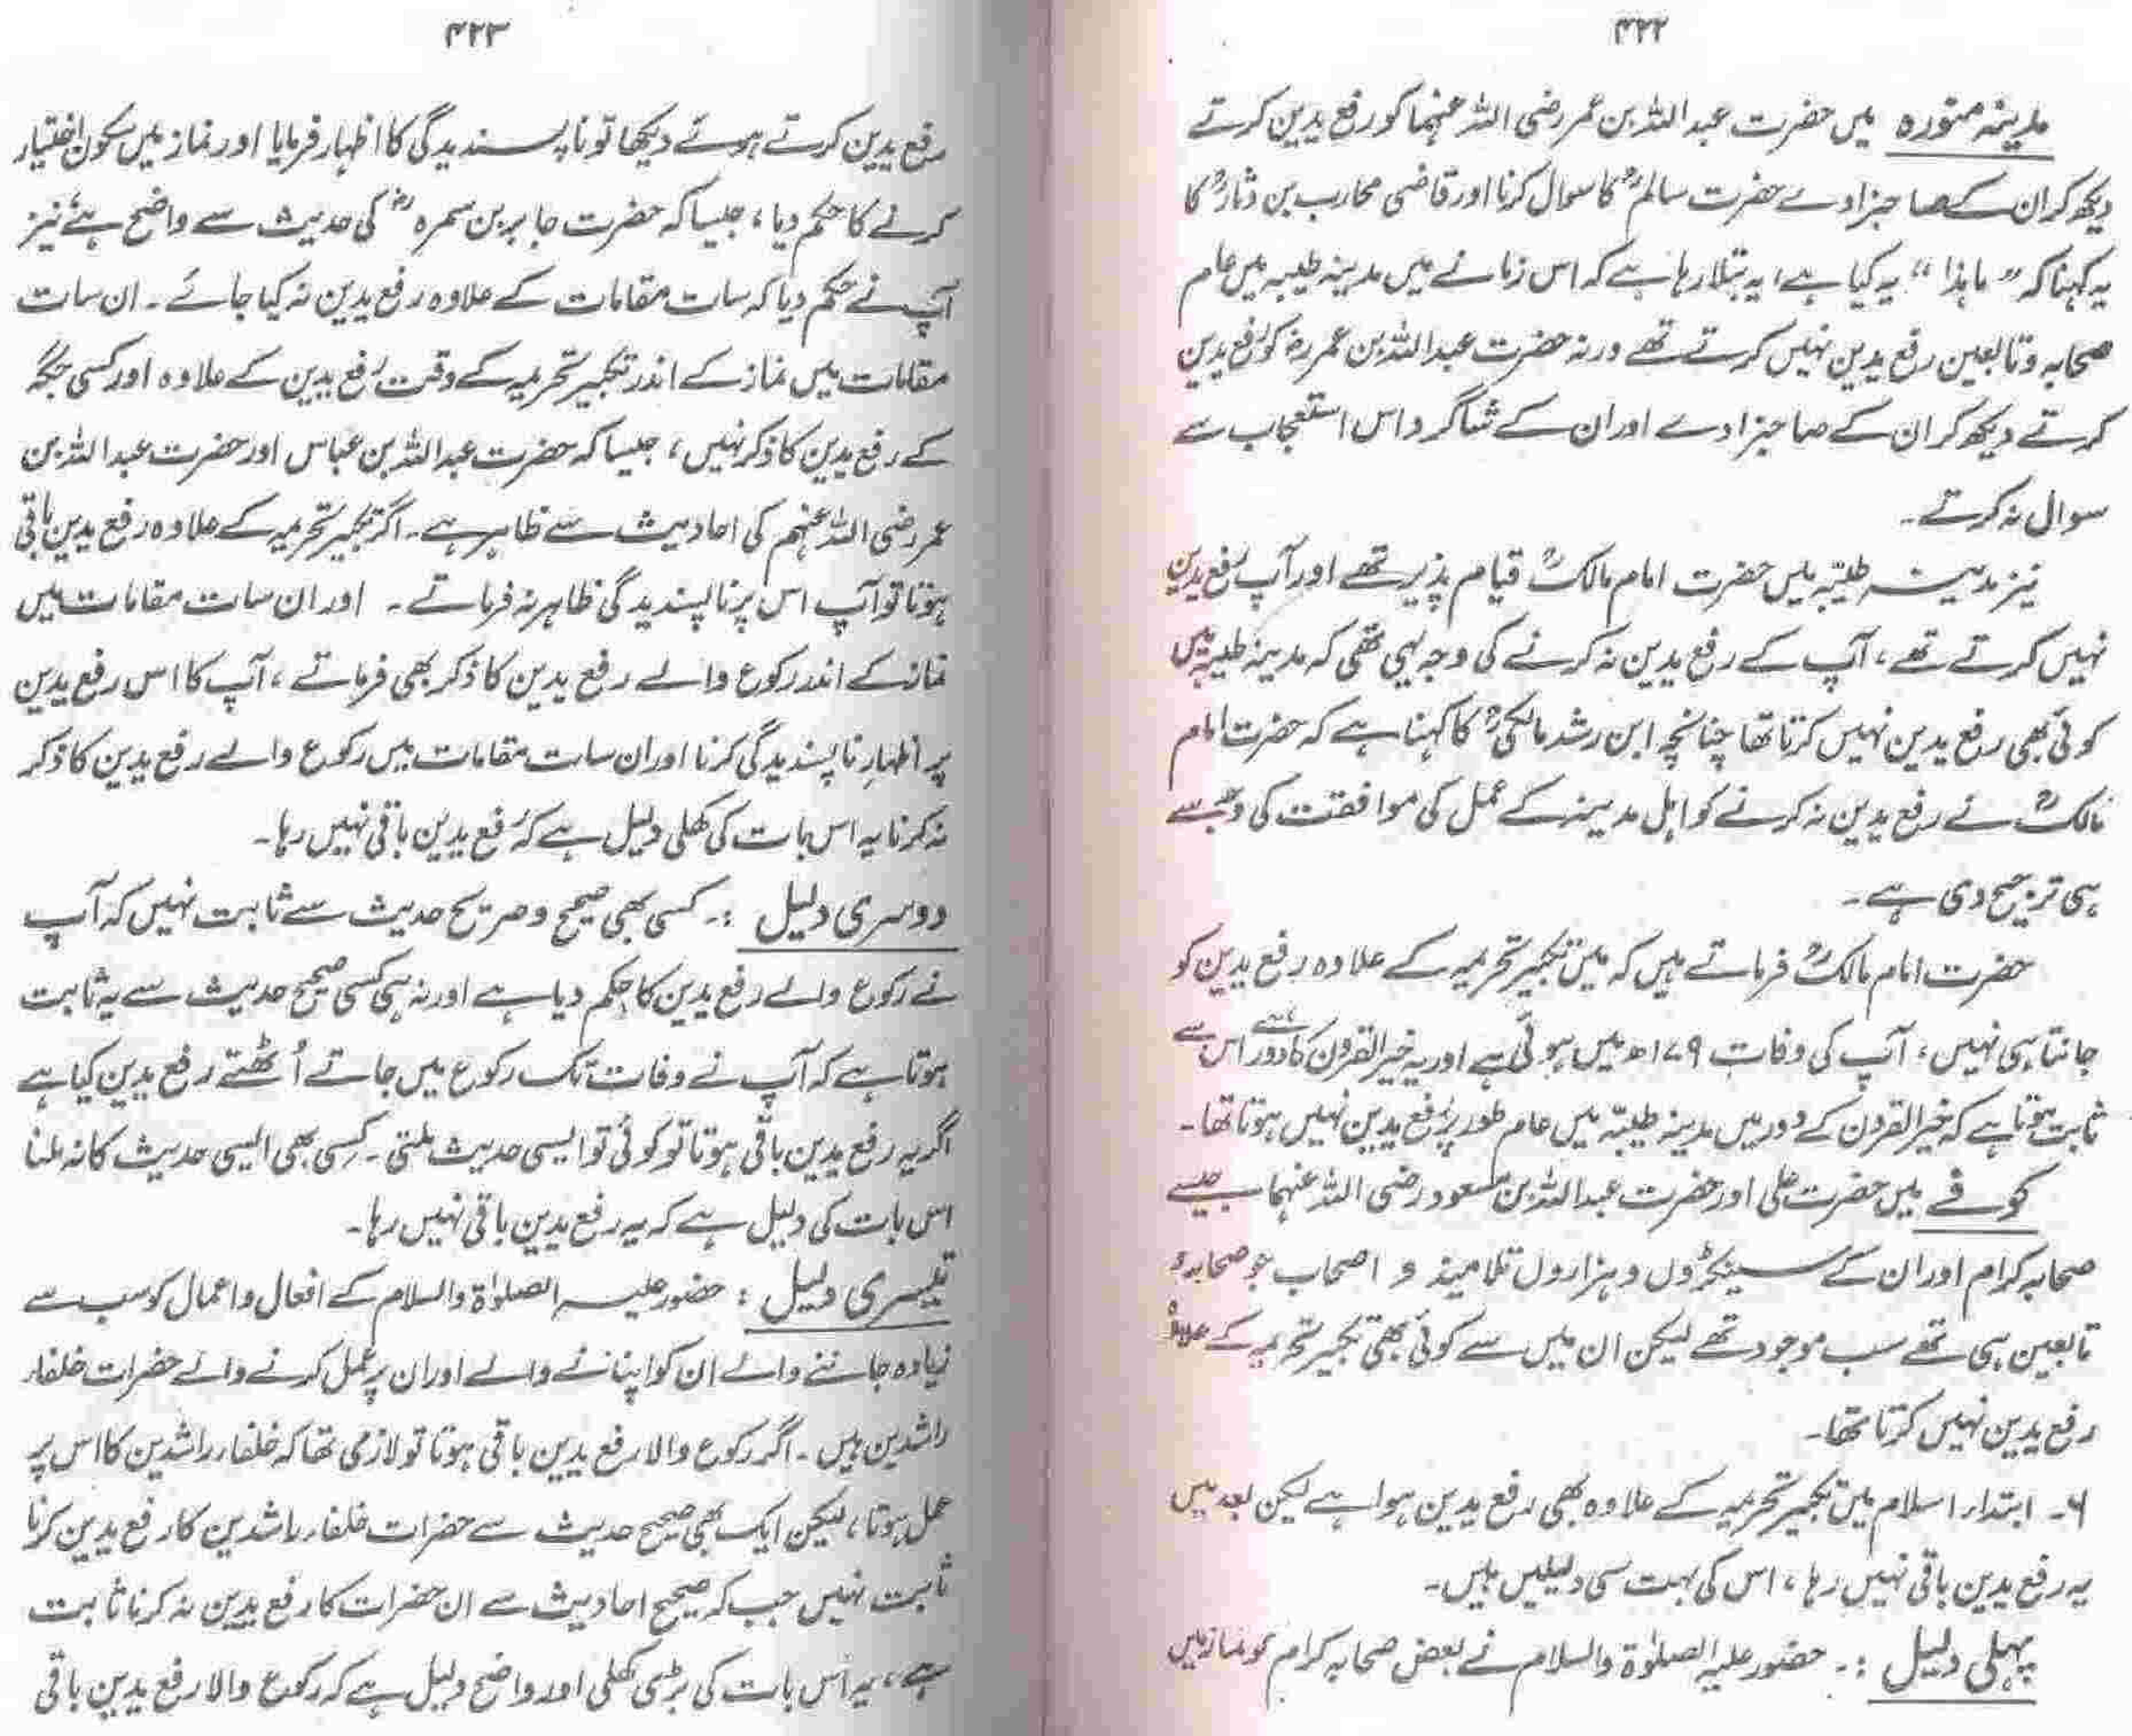 ۴۲۲
مدینہ منورہ میں حضرت عبد اللہ بن عمر رضی اللہ عنہما کو رفع یدین کرتے
دیکھ کر ان کے صاحبزادے حضرت سالمؒ کا سوال کرنا اور قاضی محارب بن دثارؒ کا
یہ کہنا کہ ”ماہذا“ یہ کیا ہے؟ یہ بتلا رہا ہے کہ اس زمانے میں مدینہ طیبہ میں عام
صحابہ و تابعین رفع یدین نہیں کرتے تھے ورنہ حضرت عبد اللہ بن عمرؓ کو رفع یدین
کرتے دیکھ کر ان کے صاحبزادے اور ان کے شاگرد اس استعجاب سے
سوال نہ کرتے۔
نیز مدینہ طیبّہ میں حضرت امام مالکؒ قیام پذیر تھے اور آپ رفع یدین
نہیں کرتے تھے، آپ کے رفع یدین نہ کرنے کی وجہ یہی تھی کہ مدینہ طیبہ میں
کوئی بھی رفع یدین نہیں کرتا تھا چنانچہ ابن رشد مالکیؒ کا کہنا ہے کہ حضرت امام
مالکؒ نے رفع یدین نہ کرنے کو اہل مدینہ کے عمل کی موافقت کی وجہ سے
ہی ترجیح دی ہے۔
حضرت امام مالکؒ فرماتے ہیں کہ میں تکبیر تحریمہ کے علاوہ رفع یدین کو
جانتا ہی نہیں، آپ کی وفات ۱۷۹ھ میں ہوئی ہے اور یہ خیر القرون کا دور ہے اس سے
ثابت ہوتا ہے کہ خیر القرون کے دور میں مدینہ طیبّہ میں عام طور پر رفع یدین نہیں ہوتا تھا۔
کوفے میں حضرت علی اور حضرت عبد اللہ بن مسعود رضی اللہ عنہما جیسے
صحابہ کرام اور ان کے سینکڑوں و ہزاروں تلامیذ و اصحاب جو صحابہ و
تابعین ہی تھے سب موجود تھے لیکن ان میں سے کوئی بھی تکبیر تحریمہ کے علاوہ
رفع یدین نہیں کرتا تھا۔
۶۔ ابتداء اسلام میں تکبیر تحریمہ کے علاوہ بھی رفع یدین ہوا ہے لیکن بعد میں
یہ رفع یدین باقی نہیں رہا، اس کی بہت سی دلیلیں ہیں۔
پہلی دلیل :۔ حضور علیہ الصلوٰۃ والسلام نے بعض صحابہ کرام کو نماز میں
۴۲۳
رفع یدین کرتے ہوئے دیکھا تو ناپسندیدگی کا اظہار فرمایا اور نماز میں سکون اختیار
کرنے کا حکم دیا، جیسا کہ حضرت جابر بن سمرہؓ کی حدیث سے واضح ہے، نیز
آپ نے حکم دیا کہ سات مقامات کے علاوہ رفع یدین نہ کیا جائے۔ ان سات
مقامات میں نماز کے اندر تکبیر تحریمہ کے وقت رفع یدین کے علاوہ اور کسی جگہ
کے رفع یدین کا ذکر نہیں، جیسا کہ حضرت عبد اللہ بن عباس اور حضرت عبد اللہ بن
عمر رضی اللہ عنہم کی احادیث سے ظاہر ہے۔ اگر تکبیر تحریمہ کے علاوہ رفع یدین باقی
ہوتا تو آپ اس پر ناپسندیدگی ظاہر نہ فرماتے۔ اور ان سات مقامات میں
نماز کے اندر رکوع والے رفع یدین کا ذکر بھی فرماتے، آپ کا اس رفع یدین
پر اظہارِ ناپسندیدگی کرنا اور ان سات مقامات میں رکوع والے رفع یدین کا ذکر
نہ کرنا یہ اس بات کی کھلی دلیل ہے کہ رفع یدین باقی نہیں رہا۔
دوسری دلیل :۔ کسی بھی صحیح و صریح حدیث سے ثابت نہیں کہ آپ
نے رکوع والے رفع یدین کا حکم دیا ہے اور نہ ہی کسی صحیح حدیث سے یہ ثابت
ہوتا ہے کہ آپ نے وفات تک رکوع میں جاتے اُٹھتے رفع یدین کیا ہے
اگر یہ رفع یدین باقی ہوتا تو کوئی تو ایسی حدیث ملتی۔ کسِی بھی ایسی حدیث کا نہ ملنا
اس بات کی دلیل ہے کہ یہ رفع یدین باقی نہیں رہا۔
تیسری دلیل : حضور علیہ الصلوٰۃ والسلام کے افعال و اعمال کو سب سے
زیادہ جاننے والے ان کو اپنانے والے اور ان پر عمل کرنے والے حضرات خلفاء
راشدین ہیں۔ اگر رکوع والا رفع یدین باقی ہوتا تو لازمی تھا کہ خلفاء راشدین کا اس پر
عمل ہوتا، لیکن ایک بھی صحیح حدیث سے حضرات خلفاء راشدین کا رفع یدین کرنا
ثابت نہیں جب کہ صحیح احادیث سے ان حضرات کا رفع یدین نہ کرنا ثابت
ہے، یہ اس بات کی بڑی کھلی اور واضح دلیل ہے کہ رکوع والا رفع یدین باقی